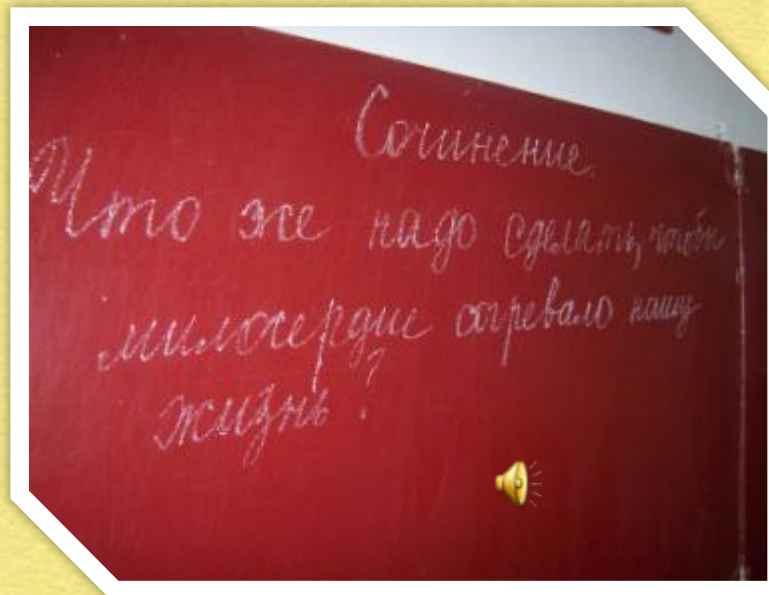 Сочинение.
Что же надо сделать, чтобы
милосердие согревало нашу
жизнь?